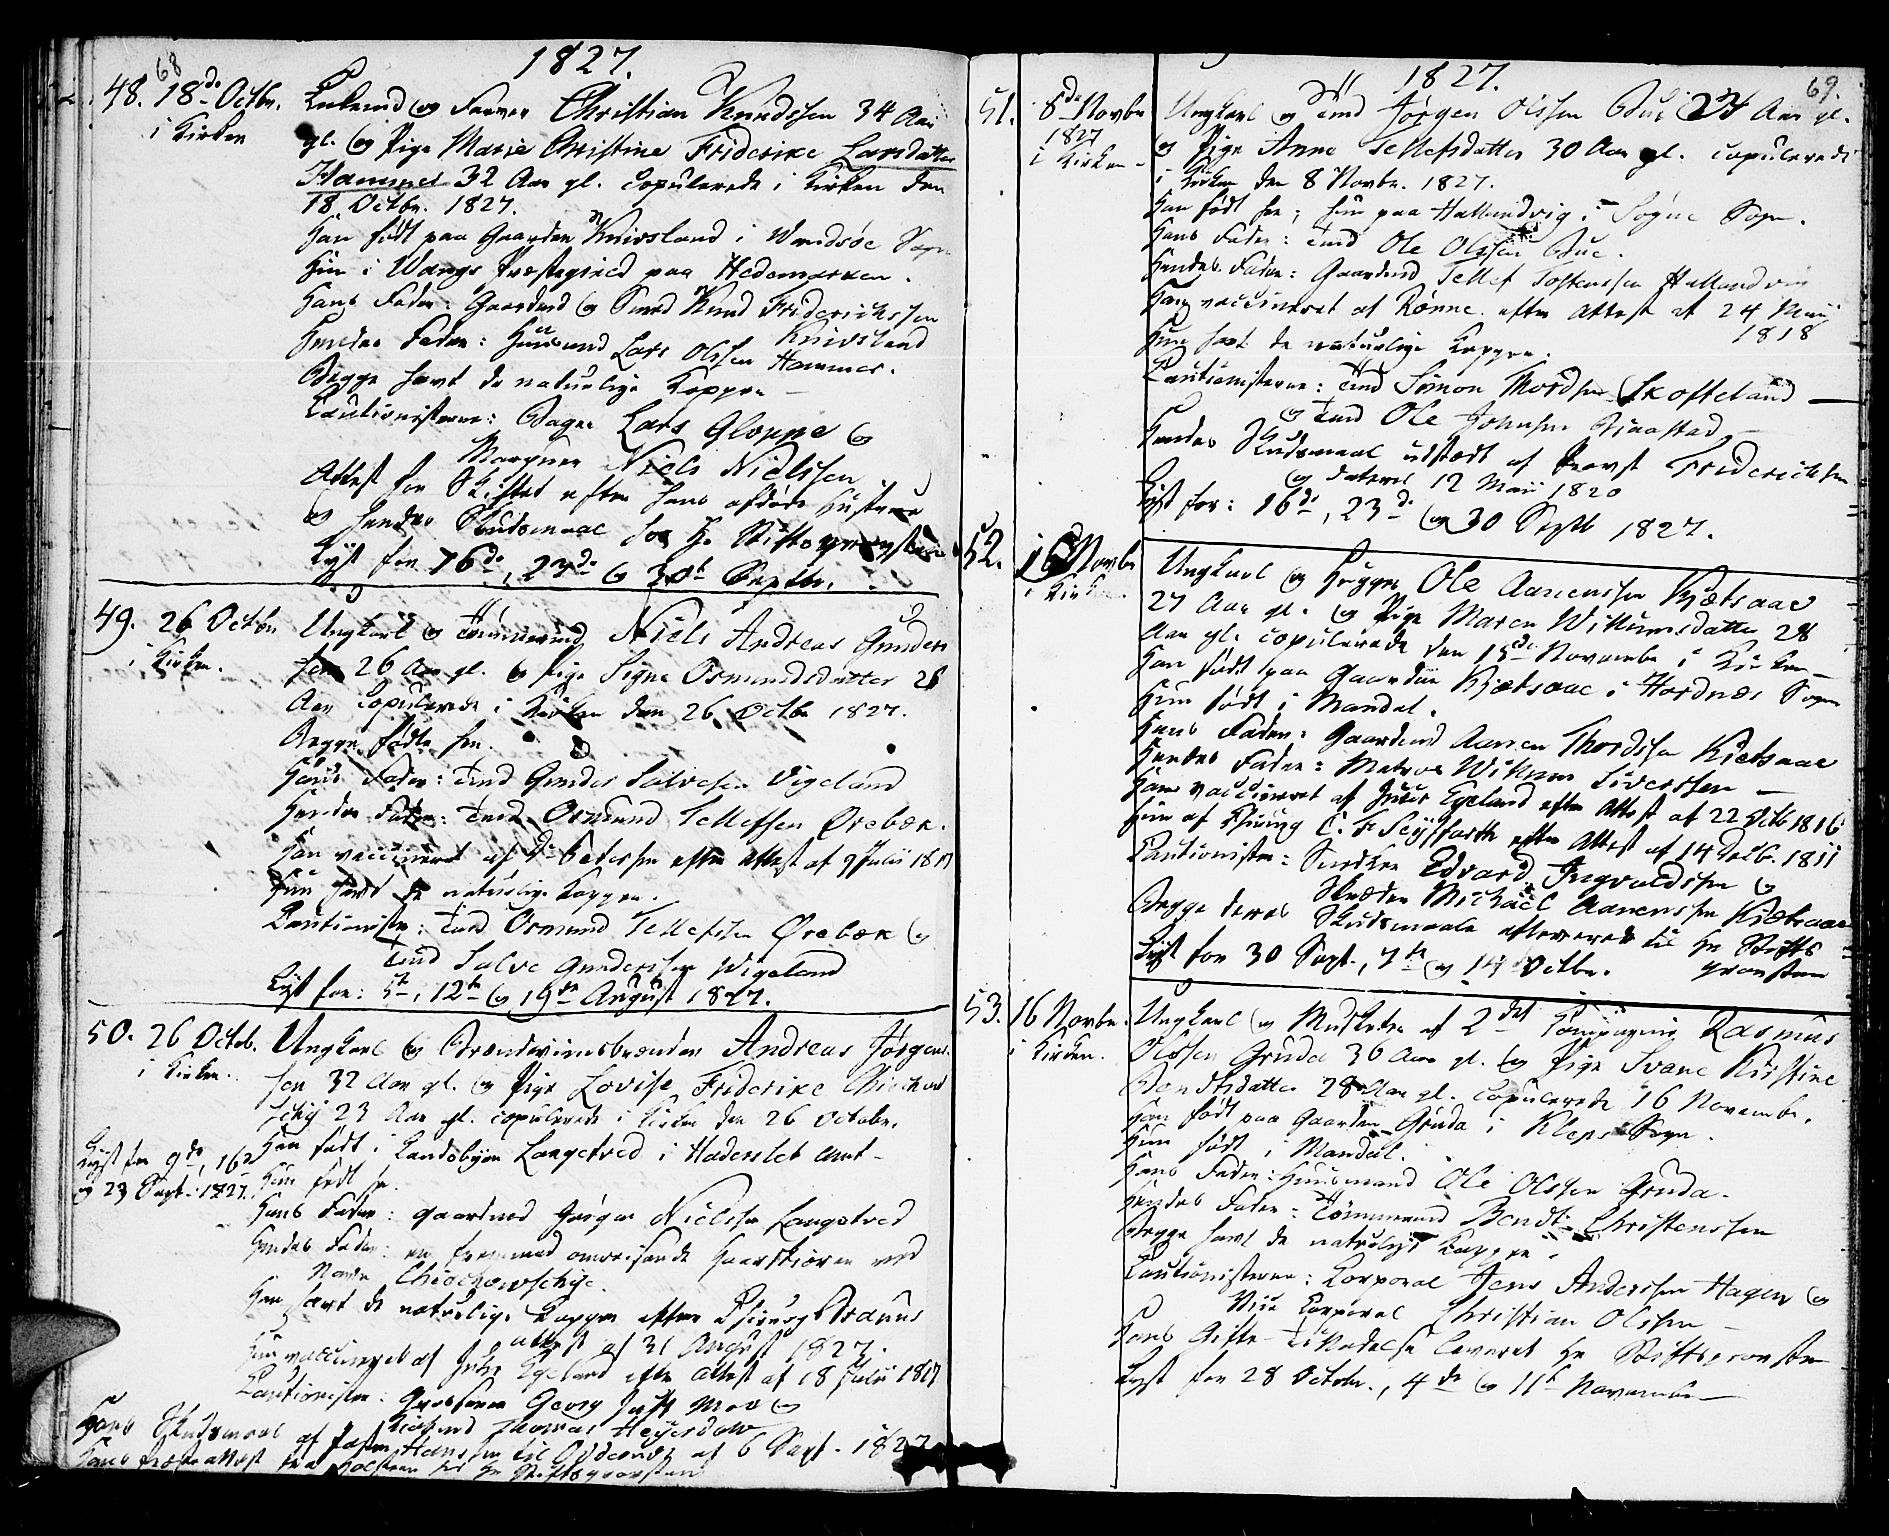 68
1827.
48. 18de Octbr.
i Kirken
Enkemd og Farver Christian Knudssen 34 Aar
gl. og Pige Marie Christine Friderike Larsdatter
Hammer 32 Aar gl. copulerede i Kirken den
18 Octbr. 1827.
Han født paa Gaarden Knivsland i Vandsøe Sogn
Hun i Wangs Præstegield paa Hedemarken.
Hans Fader: Gaardmd og Smed Knud Friderichssen
Knivsland
Hendes Fader: Huusmand Lars Olssen Hammer.
Begge havt de naturlige Kopper –
Cautionisterne: Bager Lars Gloppe og
Niels Nielssen
Attest for Skiftet efter hans afdøde Hustrue
og hendes Skudsmaal for Hr Stiftsprovsten
Lyst for 16de, 23de og 30te Septbr.
49. 26 Octbr
i Kirken.
Ungkarl og Tømmermd Niels Andreas Gunder
sen 26 Aar gl. og Pige Signe Osmundsdatter 26
Aar copulerede i Kirken den 26 Octbr 1827.
Begge fødte her.
Hans Fader: Tmd Gunder Salvesen Vigeland
Hendes Fader: Tmd Osmund Tellefsen Ørebæk.
Han vaccineret af Dr Petersen efter Attest af 9 Julii 1817
Hun havt de naturlige Kopper.
Cautionister: Tmd Osmund Tellefssen Ørebæk og
Tmd Salve Gunderssen Wigeland
Lyst for: 5te, 12te og 19de August 1827.
50. 26 Octob.
i Kirken.
Ungkarl og Brændeviinsbrænder Andreas Jørgen
sen 32 Aar gl. og Pige Lovise Friderike
23 Aar gl. copulerede i Kirken den 26 Octobr.
Lyst for 9de, 16de
og 23 Sept. 1827.
Han født i Landsbyen Langetved i Haderslev Amt –
Hun født her.
Hans Fader: Gaardmd Jørgen Nielssen Langetved
Hendes Fader: en fremmed omreisende Haarskiærer ved
Navn
Han havt de naturlige Kopper efter Chirurg
Attest af 31 August 1827.
Hun vaccineret af Juhr Egeland efter Attest af 18 Julii 1817
Cautionister: Georg Just Moe og
Kiøbmd Thomas Heyerdahl
Hans Skudsmaal af Pastor Hanssen til af 6 Sept. 1827
Hans Attest fra Hr Stiftsprovsten
69.
1827.
51. 8de Novbr
1827
i Kirken –
Ungkarl og Tmd Jørgen Olssen Bue 24 Aar gl.
og Pige Anne Tellefsdatter 30 Aar gl. copulerede
i Kirken den 8 Novbr. 1827.
Han født her; hun paa Hallandvig i Søgne Sogn.
Hans Fader: Tmd Ole Olssen Bue.
Hendes Fader: Gaardmd Tellef Tostenssen Hallandvig
Han vaccineret af Rønne efter Attest af 24 Maii
1818
Hun havt de naturlige Kopper.
Cautionisterne: Tmd Simon Thordsen Skofteland
og Tmd Ole Johnsen
Hendes Skudsmaal udstædt af Provst Friderichsen
og dateret 12 Maii 1820
Lyst for: 16de, 23de og 30 Septb 1827.
52. 16 Novbr
i Kirken
Ungkarl og Ole Aanenssen Kjetsaae
27 Aar gl. og Pige Maren Wilkumsdatter 28
Aar gl. copulerede den 15de Novembr i Kirken –
Han født paa Gaarden Kjetsaae i Hordnæs Sogn
Hun født i Mandal.
Hans Fader: Gaardmd Aanen Thordssen Kietsaae
Hendes Fader: Matros Wilkum Siverssen –
Han vaccineret af Juhr Egeland efter Attest af 22 Octb 1816
Hun af Chirurg C. F. Seyffarth efter Attest af 14 1811
Cautionister: Snedker Edvard Ingvaldssen og
Skræder Michael Aanenssen Kietsaae
Begge deres Skudsmaale afleverede til Hr Stifts
provsten
Lyst for 30 Sept., 7de og 14 Octbr.
53. 16 Novbr.
i Kirken.
Ungkarl og Musketer af 2det Compagnie Rasmus
Olssen Gruda 36 Aar gl. og Pige Svane Kirstine
Bendtsdatter 28 Aar gl. copulerede 16 Novembr.
Han født paa Gaarden Gruda i Kleps Sogn.
Hun født i Mandal.
Hans Fader: Huusmand Ole Olssen Gruda.
Hendes Fader: Tømmermd Bendt Christenssen
Begge havt de naturlige Kopper.
Cautionisterne: Corporal Jens Anderssen Hagen og
Vice Corporal Christian Olssen –
Hans Gifte-Tilladelse leveret Hr Stiftsprovsten
Lyst for 28 Octobr., 4de og 11te November –